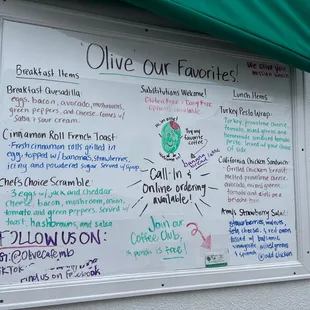 Olive Our Favorites!
We Olive you
Breakfast Items
Breakfast Quesadilla
eggs, bacon, avocado, mushrooms,
green peppers, and cheese. comes w/
Salsa & sour cream.
Cinnamon Roll French Toast
-Fresh cinnamon rolls grilled in
egg, topped w/ bananas, strawberries,
icing and powdered sugar. Served w/ syrup
Chefs Choice Scramble
3 eggs w/ jack and cheddar
cheese, bacon, mushroom, onion,
tomato and green peppers. Served w/
toast, hashbrowns and salsa
FOLLOW US ON:
@OliveCafe.mb
TikTok
Find us on Facebook
Substitutions Welcome!
Gluten Free & Dairy Free
Options available
Try my
coffee
Call-in &
Online ordering
available!
Join our
Coffee Club,
is free!
Lunch Items
Turkey Pesto Wrap:
Turkey, provolone cheese,
tomato, mixed greens and
homemade pesto on
tortilla. Served w/ your
side of
California Chicken Sandwich
Grilled Chicken breast,
Melted provolone cheese,
avocado, mixed greens,
tomato and aioli on a
Strawberry Salad
Strawberries, walnuts,
feta cheese, red onion
w/ balsamic
vinaigrette
greens
add chicken